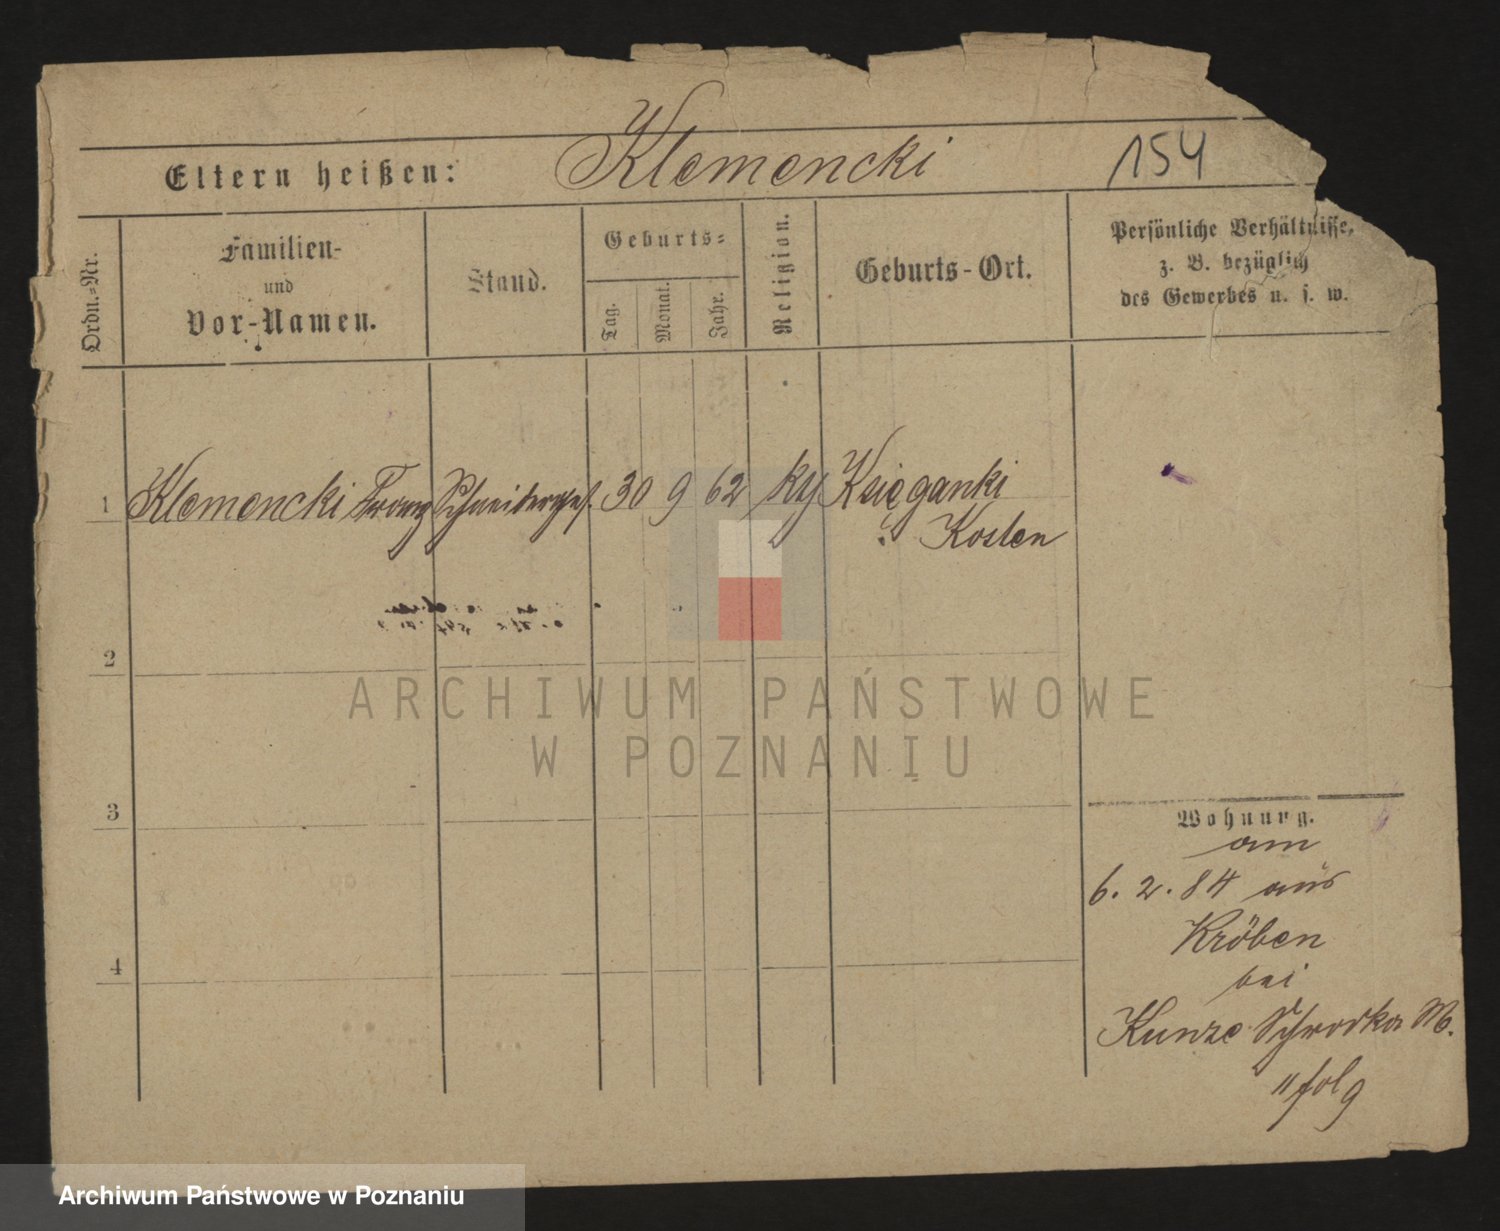 Klemencki
154
Eltern heißen:
Ordn.-Nr.
Familien-
und
Vor-Namen.
Stand.
Geburts-
Tag.
Monat.
Jahr.
Religion.
Geburts-Ort.
Persönliche Verhältnisse,
z. B. bezüglich
des Gewerbes u. s. w.
1 Klemencki Franz Schneiderges. 30 9 62 Księganki
Kosten
2
3
4
Wohnung.
am
6. 2. 84 aus
Kröben
bei
Kunze Schrodka M.
ARCHIWUM PAŃSTWOWE
W POZNANIU
Archiwum Państwowe w Poznaniu